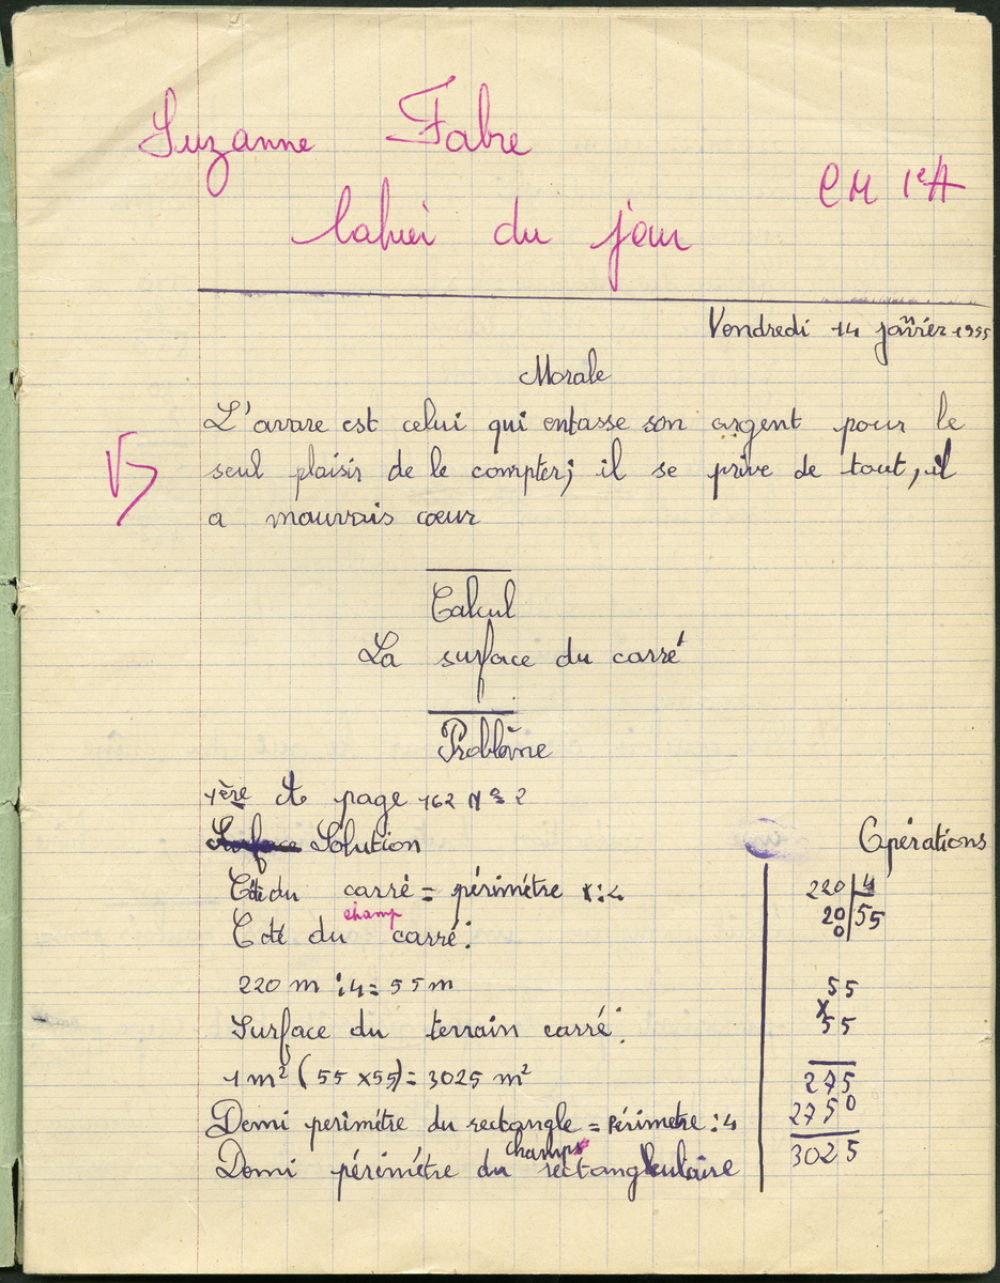 Suzanne Fabre
CM 1e A
Cahier du jour
Vendredi 14 janvier 1955
Morale
L'avare est celui qui entasse son argent pour le
seul plaisir de le compter; il se prive de tout, il
a mauvais cœur
Calcul
La surface du carré
Problème
1ère page 162 N° 2
Surface Solution
Opérations
Côté du carré = périmétre x:4
champ
Coté du carré:
220 m :4= 55 m
Surface du terrain carré:
1 m² (55 x 55) = 3025 m²
Demi perimétre du rectangle = Périmetre :4
champs
Demi périmétre du rectangulaire
220 4
20 55
0
55
x
55
275
2750
3025